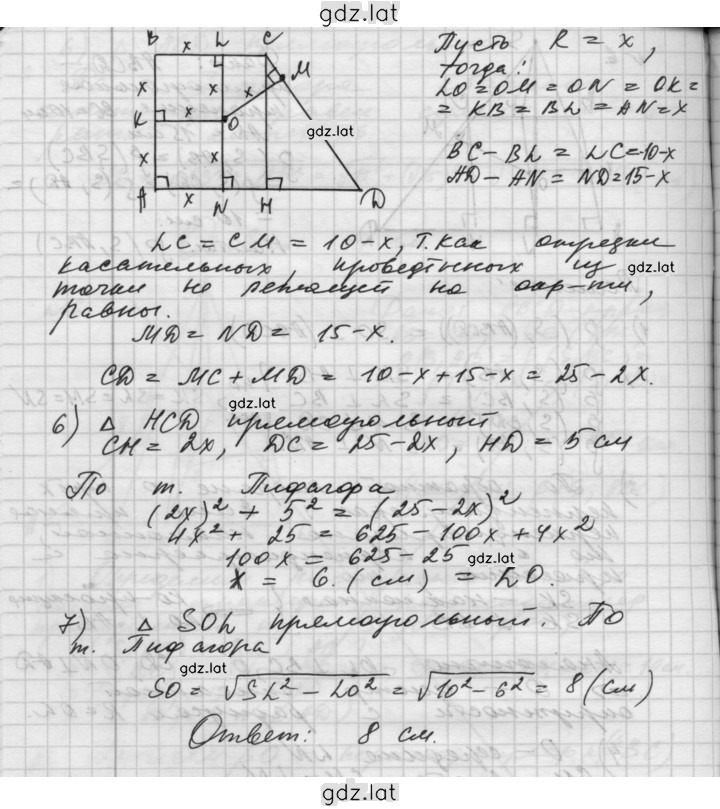 gdz.lat
B x L C
M
x x x x
K x O
gdz.lat
x x x
A x N H D
Пусть R = x,
тогда:
LO = OM = ON = OK =
= KB = BL = AN = x
BC - BL = LC = 10-x
AD - AN = ND = 15-x
LC = CM = 10-x, т.как отрезки
касательных, проведённых из
gdz.lat
точки не лежащей на окр-ти,
равны.
MD = ND = 15-x.
CD = MC + MD = 10-x+15-x = 25-2x.
gdz.lat
6) Δ HCD прямоугольный
CH = 2x, DC = 25-2x, HD = 5 см
По т. Пифагора
(2x)² + 5² = (25-2x)²
4x² + 25 = 625 - 100x + 4x²
100x = 625 - 25
gdz.lat
x = 6 (см) = LO.
7) Δ SOL прямоугольный. По
т. Пифагора
gdz.lat
SO = √SL² - LO² = √10² - 6² = 8 (см)
Ответ: 8 см.
gdz.lat
gdz.lat